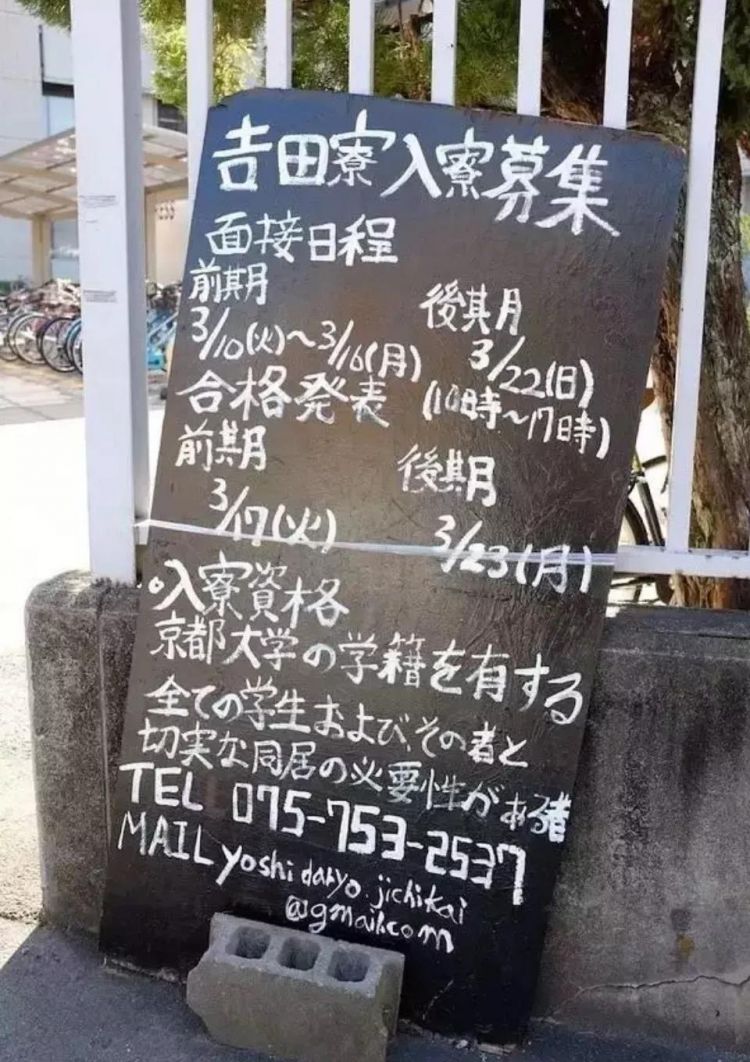 吉田寮入寮募集
面接日程
前期
3/10(火)〜3/16(月)
後期
3/22(日)
(10時〜17時)
合格発表
前期
3/17(火)
後期
3/23(月)
。入寮資格
京都大学の学籍を有する
全ての学生および、その者と
切実な同居の必要性がある者
TEL 075-753-2537
MAIL yoshidaryo.jichikai
@gmail.com